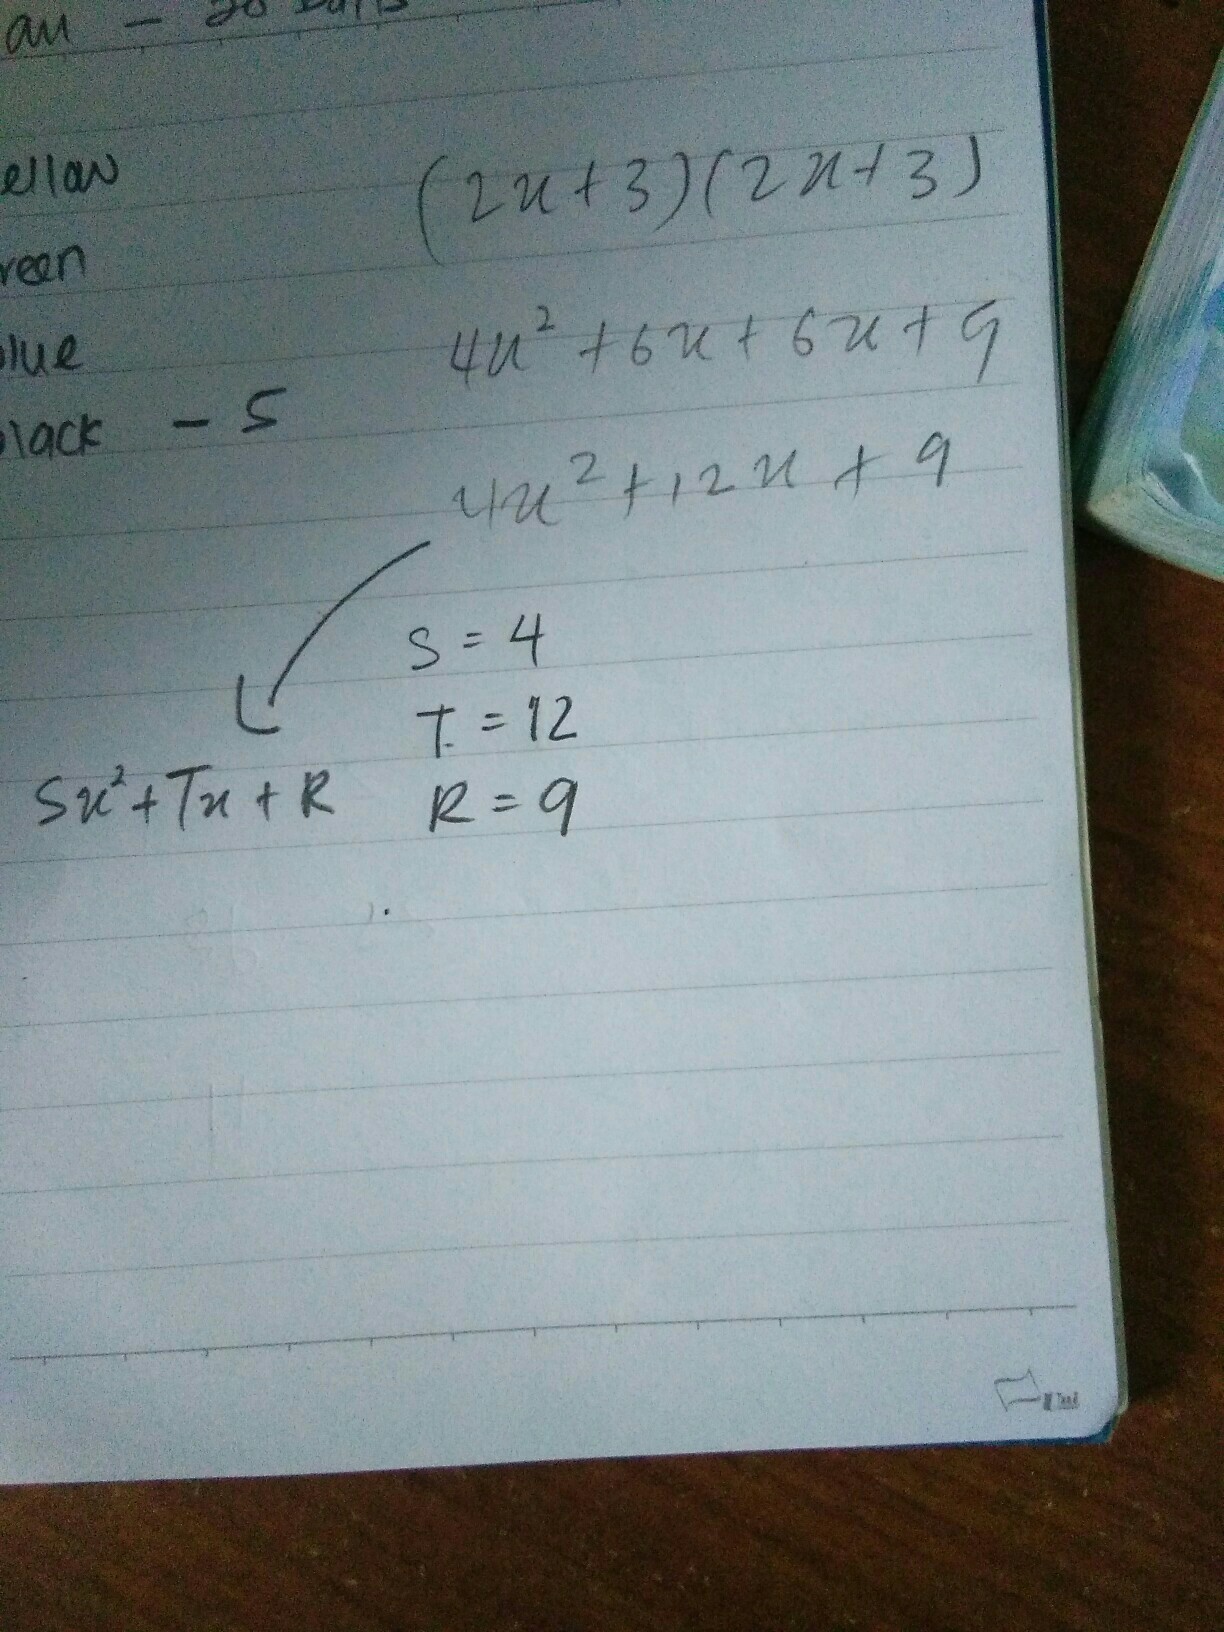 all - 20 balls
ellow
reen
lue
lack - 5
(2x+3)(2x+3)
4x² + 6x + 6x + 9
4x² + 12x + 9
S = 4
T = 12
Sx² + Tx + R
R = 9